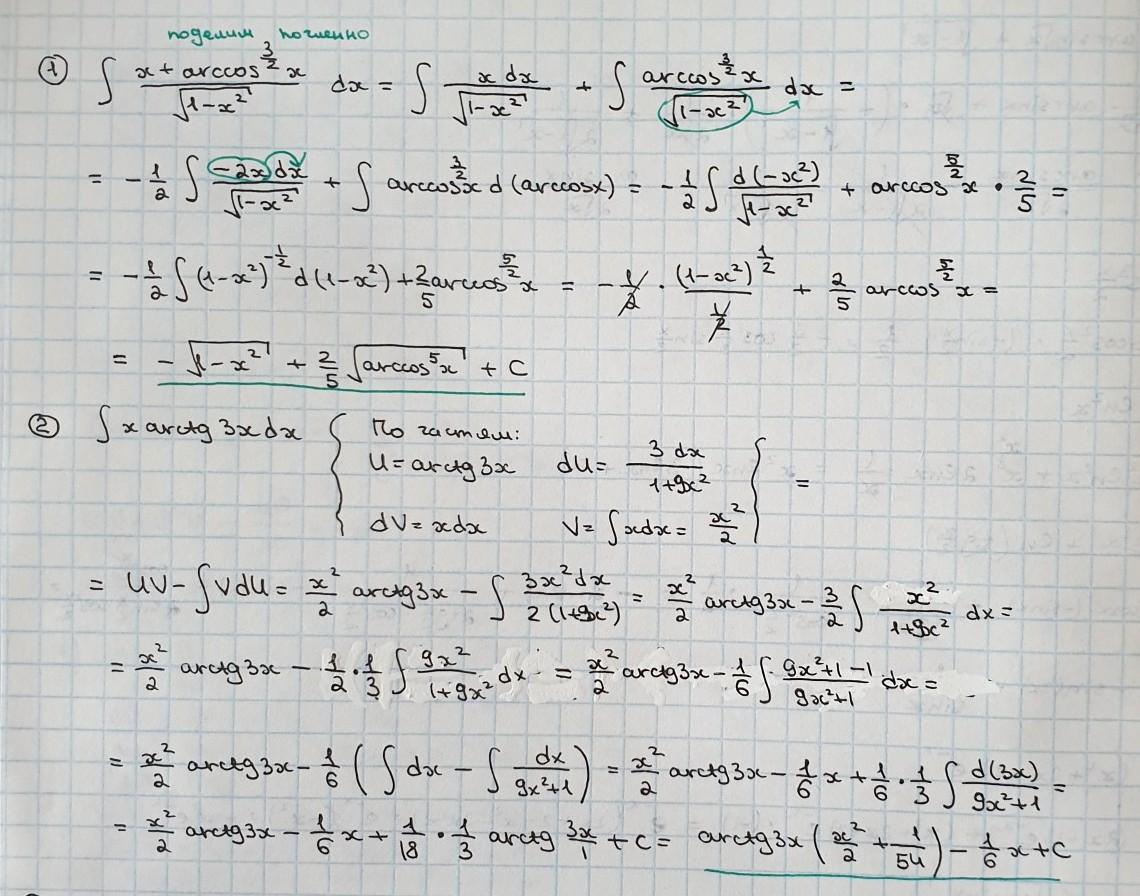 поделим почленно
① ∫ (x + arccos^{3/2} x)/√(1-x²) dx = ∫ x dx/√(1-x²) + ∫ arccos^{3/2} x/√(1-x²) dx =
= -1/2 ∫ -2x dx/√(1-x²) + ∫ arccos^{3/2} x d(arccos x) = -1/2 ∫ d(-x²)/√(1-x²) + arccos^{5/2} x • 2/5 =
= -1/2 ∫ (1-x²)^{-1/2} d(1-x²) + 2/5 arccos^{5/2} x = -1/2 • (1-x²)^{1/2}/(1/2) + 2/5 arccos^{5/2} x =
= -√(1-x²) + 2/5 √(arccos⁵x) + C
② ∫ x arctg 3x dx { По частям:
U = arctg 3x dU = 3 dx/(1+9x²)
dV = x dx V = ∫ x dx = x²/2 } =
= UV - ∫ V dU = x²/2 arctg 3x - ∫ 3x² dx/(2(1+9x²)) = x²/2 arctg 3x - 3/2 ∫ x²/(1+9x²) dx =
= x²/2 arctg 3x - 1/2 • 1/3 ∫ 9x²/(1+9x²) dx = x²/2 arctg 3x - 1/6 ∫ (9x²+1-1)/(9x²+1) dx =
= x²/2 arctg 3x - 1/6 (∫ dx - ∫ dx/(9x²+1)) = x²/2 arctg 3x - 1/6 x + 1/6 • 1/3 ∫ d(3x)/(9x²+1) =
= x²/2 arctg 3x - 1/6 x + 1/18 • 1/3 arctg 3x/1 + C = arctg 3x (x²/2 + 1/54) - 1/6 x + C